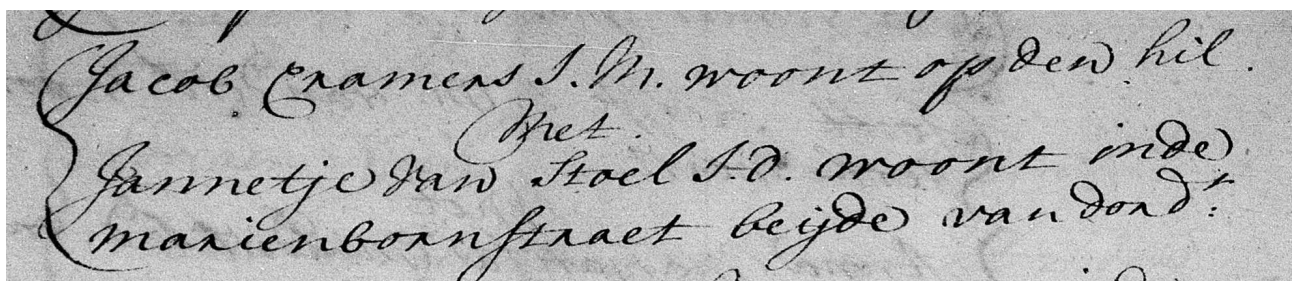 Jacob Cramers J. M. woont op den hil.
Met.
Jannetje van Stoel J. d. woont inde
marienbornstraet beijde van dordt: